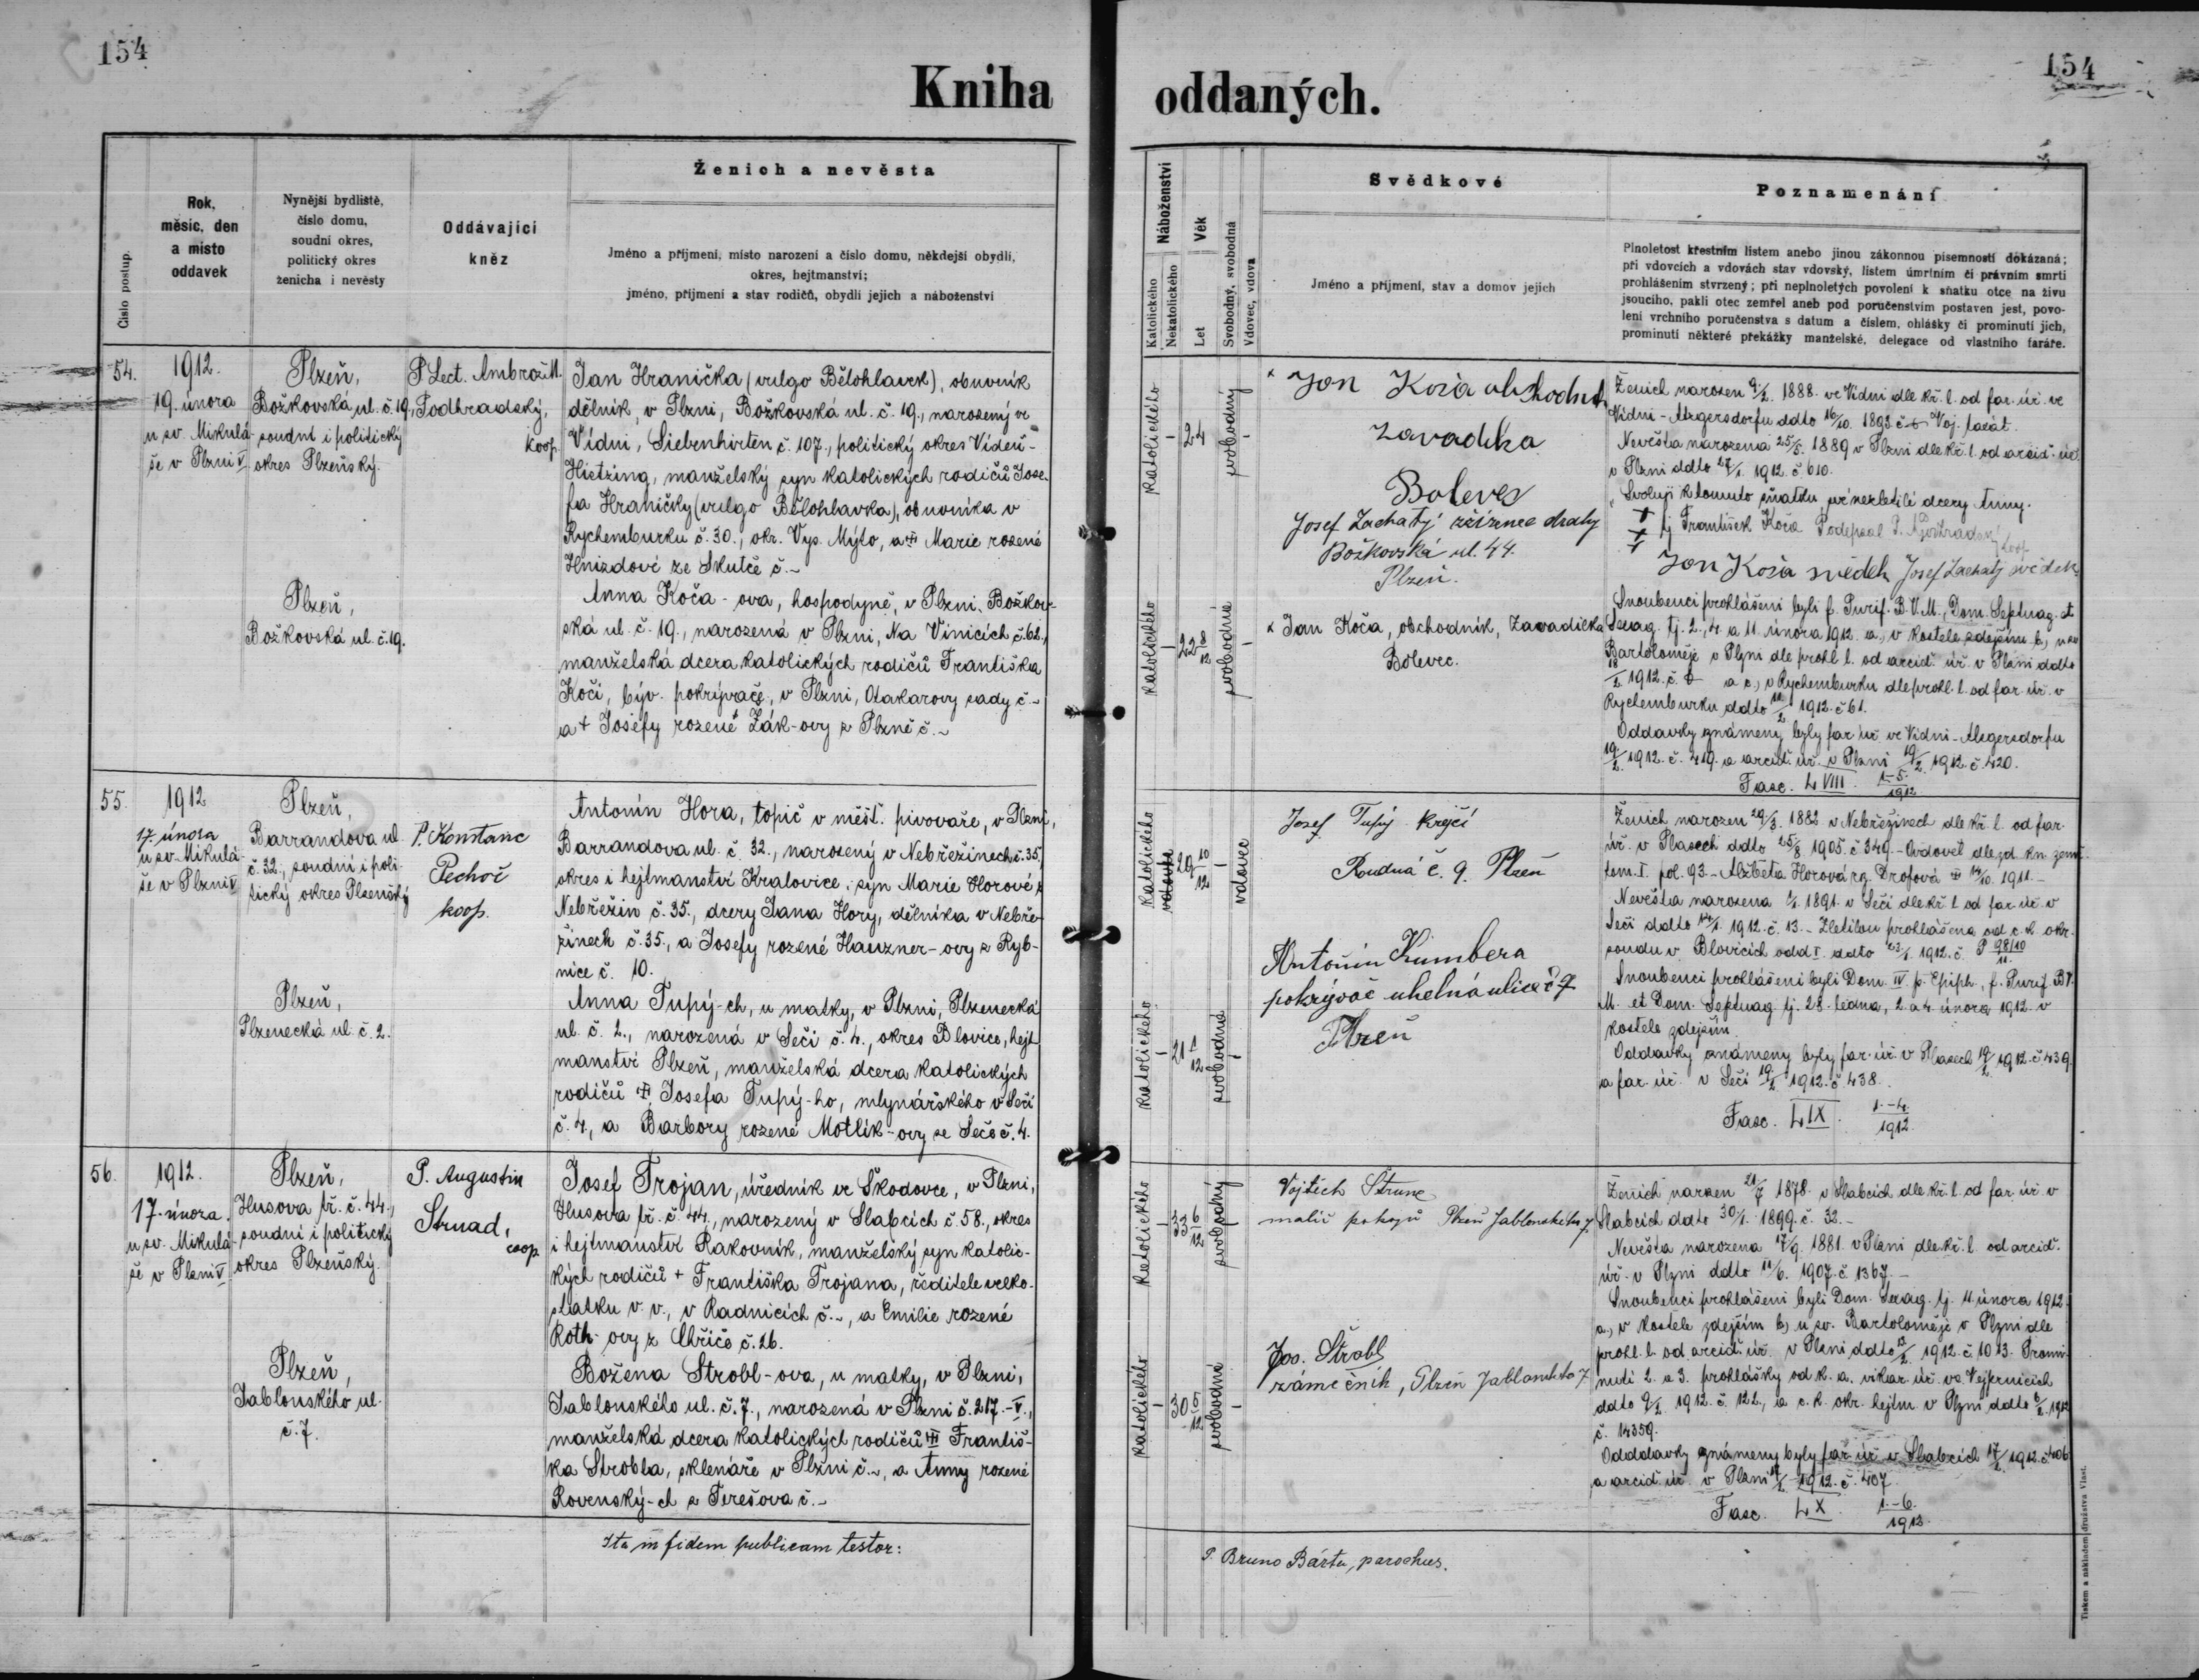 154
154
Kniha oddaných.
Číslo postup.
Rok,
měsíc, den
a místo
oddavek
Nynější bydliště,
číslo domu,
soudní okres,
politický okres
ženicha i nevěsty
Oddávající
kněz
Ženich a nevěsta
Jméno a příjmení, místo narození a číslo domu, někdejší obydlí,
okres, hejtmanství;
jméno, příjmení a stav rodičů, obydlí jejich a náboženství
Náboženství
Katolického
Nekatolického
Věk
Let
Svobodný, svobodná
Vdovec, vdova
Svědkové
Jméno a příjmení, stav a domov jejich
Poznamenání
Plnoletost křestním listem anebo jinou zákonnou písemností dokázaná;
při vdovcích a vdovách stav vdovský, listem úmrtním či právním smrti
prohlášením stvrzený; při neplnoletých povolení k sňatku otce na živu
jsoucího, pakli otec zemřel aneb pod poručenstvím postaven jest, povo-
lení vrchního poručenstva s datum a číslem, ohlášky či prominutí jich,
prominutí některé překážky manželské, delegace od vlastního faráře.
54.
1912.
19. února
u sv. Mikulá-
še v Plzni V.
Plzeň,
Božkovská ul. č. 19,
soudní i politický
okres Plzeňský.
P. Lect. Ambrož M.
Podhradský,
koop.
Jan Hranička (vulgo Bělohlavek), obuvník
dělník, v Plzni, Božkovská ul. č. 19., narozený ve
Vídni, Siebenhirten č. 107., politický okres Vídeň-
Hietzing, manželský syn katolických rodičů Jose-
fa Hraničky (vulgo Bělohlavka), obuvníka v
Rychemburku č. 30., okr. Vys. Mýto, a Marie rozené
Hnízdové ze Skutče č.-
Plzeň,
Božkovská ul. č. 19.
Anna Koča-ova, hospodyně, v Plzni, Božkov-
ská ul. č. 19., narozená v Plzni, Na Vinicích č. 62.,
manželská dcera katolických rodičů Františka
Koči, býv. pokrývače, v Plzni, Otakarovy sady č.-
a + Josefy rozené Žák-ovy z Plzně č.-
katolického
24
svobodný
katolického
22 8/12
svobodná
Jan Koča obchodník
zavadilka
Bolevec
Josef Zachatý zřízenec dráhy
Božkovská ul. 44.
Plzeň.
× Jan Koča, obchodník, Zavadilka
Bolevec.
Ženich narozen 9/2. 1888. ve Vídni dle kř. l. od far. úř. ve
Vídni-Atzgersdorfu ddto 16/10. 1893. č.
Nevěsta narozena 25/5. 1889 v Plzni dle kř. l. od arcid. úř.
v Plzni ddto 27/1. 1912. č 610.
Svoluji k tomuto sňatku své nezletilé dcery Anny.
+ + + tj František Koča Podepsal P. A. Podhradský koop.
Jan Koča svědek Josef Zachatý svědek
Snoubenci prohlášeni byli f. Purif. B.V.M., Dom. Septuag. et
Sexag. tj. 2., 4. a 11. února 1912. a., v kostele zdejším b., u sv.
Bartoloměje v Plzni dle prohl. l. od arcid. úř. v Plzni ddto
18/2. 1912. č. a c., v Rychemburku dle prohl. l. od far. úř. v
Rychemburku ddto 12/2. 1912. č 61.
Oddavky známeny byly far. úř. ve Vídni-Atzgersdorfu
19/2. 1912. č. 419. a arcid. úř. v Plzni 19/2. 1912. č 420.
Fasc. LVIII. 1-5./1912
55.
1912
17. února
u sv. Mikulá-
še v Plzni V.
Plzeň,
Barrandova ul.
č. 32., soudní i poli-
tický okres Plzeňský
P. Konstanc
Pechoč
koop.
Antonín Hora, topič v měšť. pivovaře, v Plzni,
Barrandova ul. č. 32., narozený v Nebřežinech č. 35,
okres i hejtmanství Kralovice, syn Marie Horové z
Nebřežin č. 35., dcery Jana Hory, dělníka v Nebře-
žinech č. 35., a Josefy rozené Hauzner-ovy z Ryb-
nice č. 10.
Plzeň,
Plzenecká ul. č. 2.
Anna Tupý-ch, u matky, v Plzni, Plzenecká
ul. č. 2., narozená v Seči č. 4., okres Blovice, hejt-
manství Plzeň, manželská dcera katolických
rodičů Josefa Tupý-ho, mlynářského v Seči
č. 4, a Barbory rozené Motlík-ovy ze Seče č. 4.
katolického
29 10/12
vdovec
katolického
21 1/12
svobodná
Josef Tupý krejčí
Roudná č. 9. Plzeň
Antonín Kumbera
pokrývač uhelná ulice č 7
Plzeň
Ženich narozen 29/3. 1882 v Nebřežinech dle kř. l. od far.
úř. v Plasech ddto 25/8 1905. č 349.- Ovdověl dle zd. kn. zemř.
tom. I. pol. 93.- Alžběta Horová rz. Drofová 14/10. 1911.-
Nevěsta narozena 1/1. 1891. v Seči dle kř. l. od far. úř. v
Seči ddto 14/1. 1912. č. 13.- Zletilou prohlášena od c. k. okr.
soudu v Blovicích odd I. ddto 23/1. 1912. č. P 98/10 11.
Snoubenci prohlášeni byli Dom. IV. p. Epiph., f. Purif. B.V.
M. et Dom. Septuag. tj. 28. ledna, 2. a 4. února 1912. v
kostele zdejším.
Oddavky známeny byly far. úř. v Plasech 19/2. 1912. č 439.
a far. úř. v Seči 19/2. 1912. č 438.
Fasc. LIX. 1.-4./1912.
56.
1912.
17. února.
u sv. Mikulá-
še v Plzni V.
Plzeň,
Husova tř. č. 44.,
soudní i politický
okres Plzeňský.
P. Augustin
Strnad,
coop.
Josef Trojan, úředník ve Škodovce, v Plzni,
Husova tř. č. 44., narozený v Slabcích č. 58., okres
i hejtmanství Rakovník, manželský syn katolic-
kých rodičů + Františka Trojana, ředitele velko-
statku v. v., v Radnicích č.-, a Emilie rozené
Roth-ovy z Chříče č. 26.
Plzeň,
Jablonského ul.
č. 7.
Božena Strobl-ova, u matky, v Plzni,
Jablonského ul. č. 7., narozená v Plzni č. 217.-V.,
manželská dcera katolických rodičů Františ-
ka Strobla, sklenáře v Plzni č.-, a Anny rozené
Rovenský-ch z Terešova č.-
katolického
33 6/12
svobodný
katolického
30 5/12
svobodná
Vojtěch Štrunc
malíř pokojů Plzeň Jablonského 7.
Jos. Štrobl
zámečník, Plzeň Jablonského 7
Ženich narozen 21/7 1878. v Slabcích dle kř. l. od far. úř. v
Slabcích ddto 30/1. 1899. č. 32.-
Nevěsta narozena 17/9. 1881. v Plzni dle kř. l. od arcid.
úř. v Plzni ddto 11/6. 1907. č. 1367.-
Snoubenci prohlášeni byli Dom. Sexag. tj. 11 února 1912.
a., v kostele zdejším b) u sv. Bartoloměje v Plzni dle
prohl. l. od arcid. úř. v Plzni ddto 1912. č. 1013. Promi-
nutí 2. a 3. prohlášky od k. a. vikar. úř. ve Vejprnicích
ddto 9/2. 1912. č. 122., a c. k. okr. hejtm. v Plzni ddto 6/2. 1912
č. 14359.
Odddavky známeny byly far. úř. v Slabcích 17/2. 1912. č 406
a arcid. úř. v Plzni 17/2. 1912. č. 407.
Fasc. LX. 1.-6./1912.
Ita in fidem publicam testor:
P. Bruno Bárta, parochus.
Tiskem a nákladem družstva Vlast.